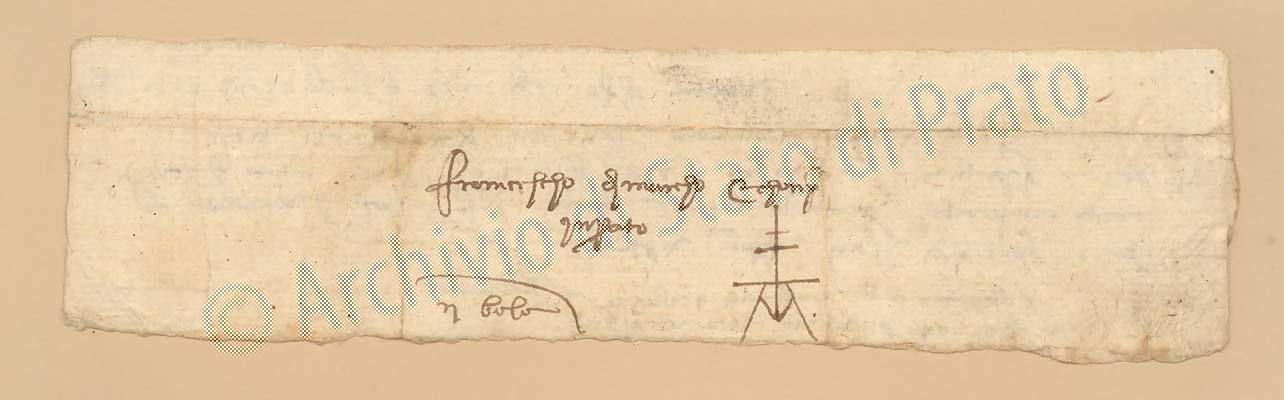 francischo di marcho e chonpⁱ
in prato
© Archivio di Stato di Prato